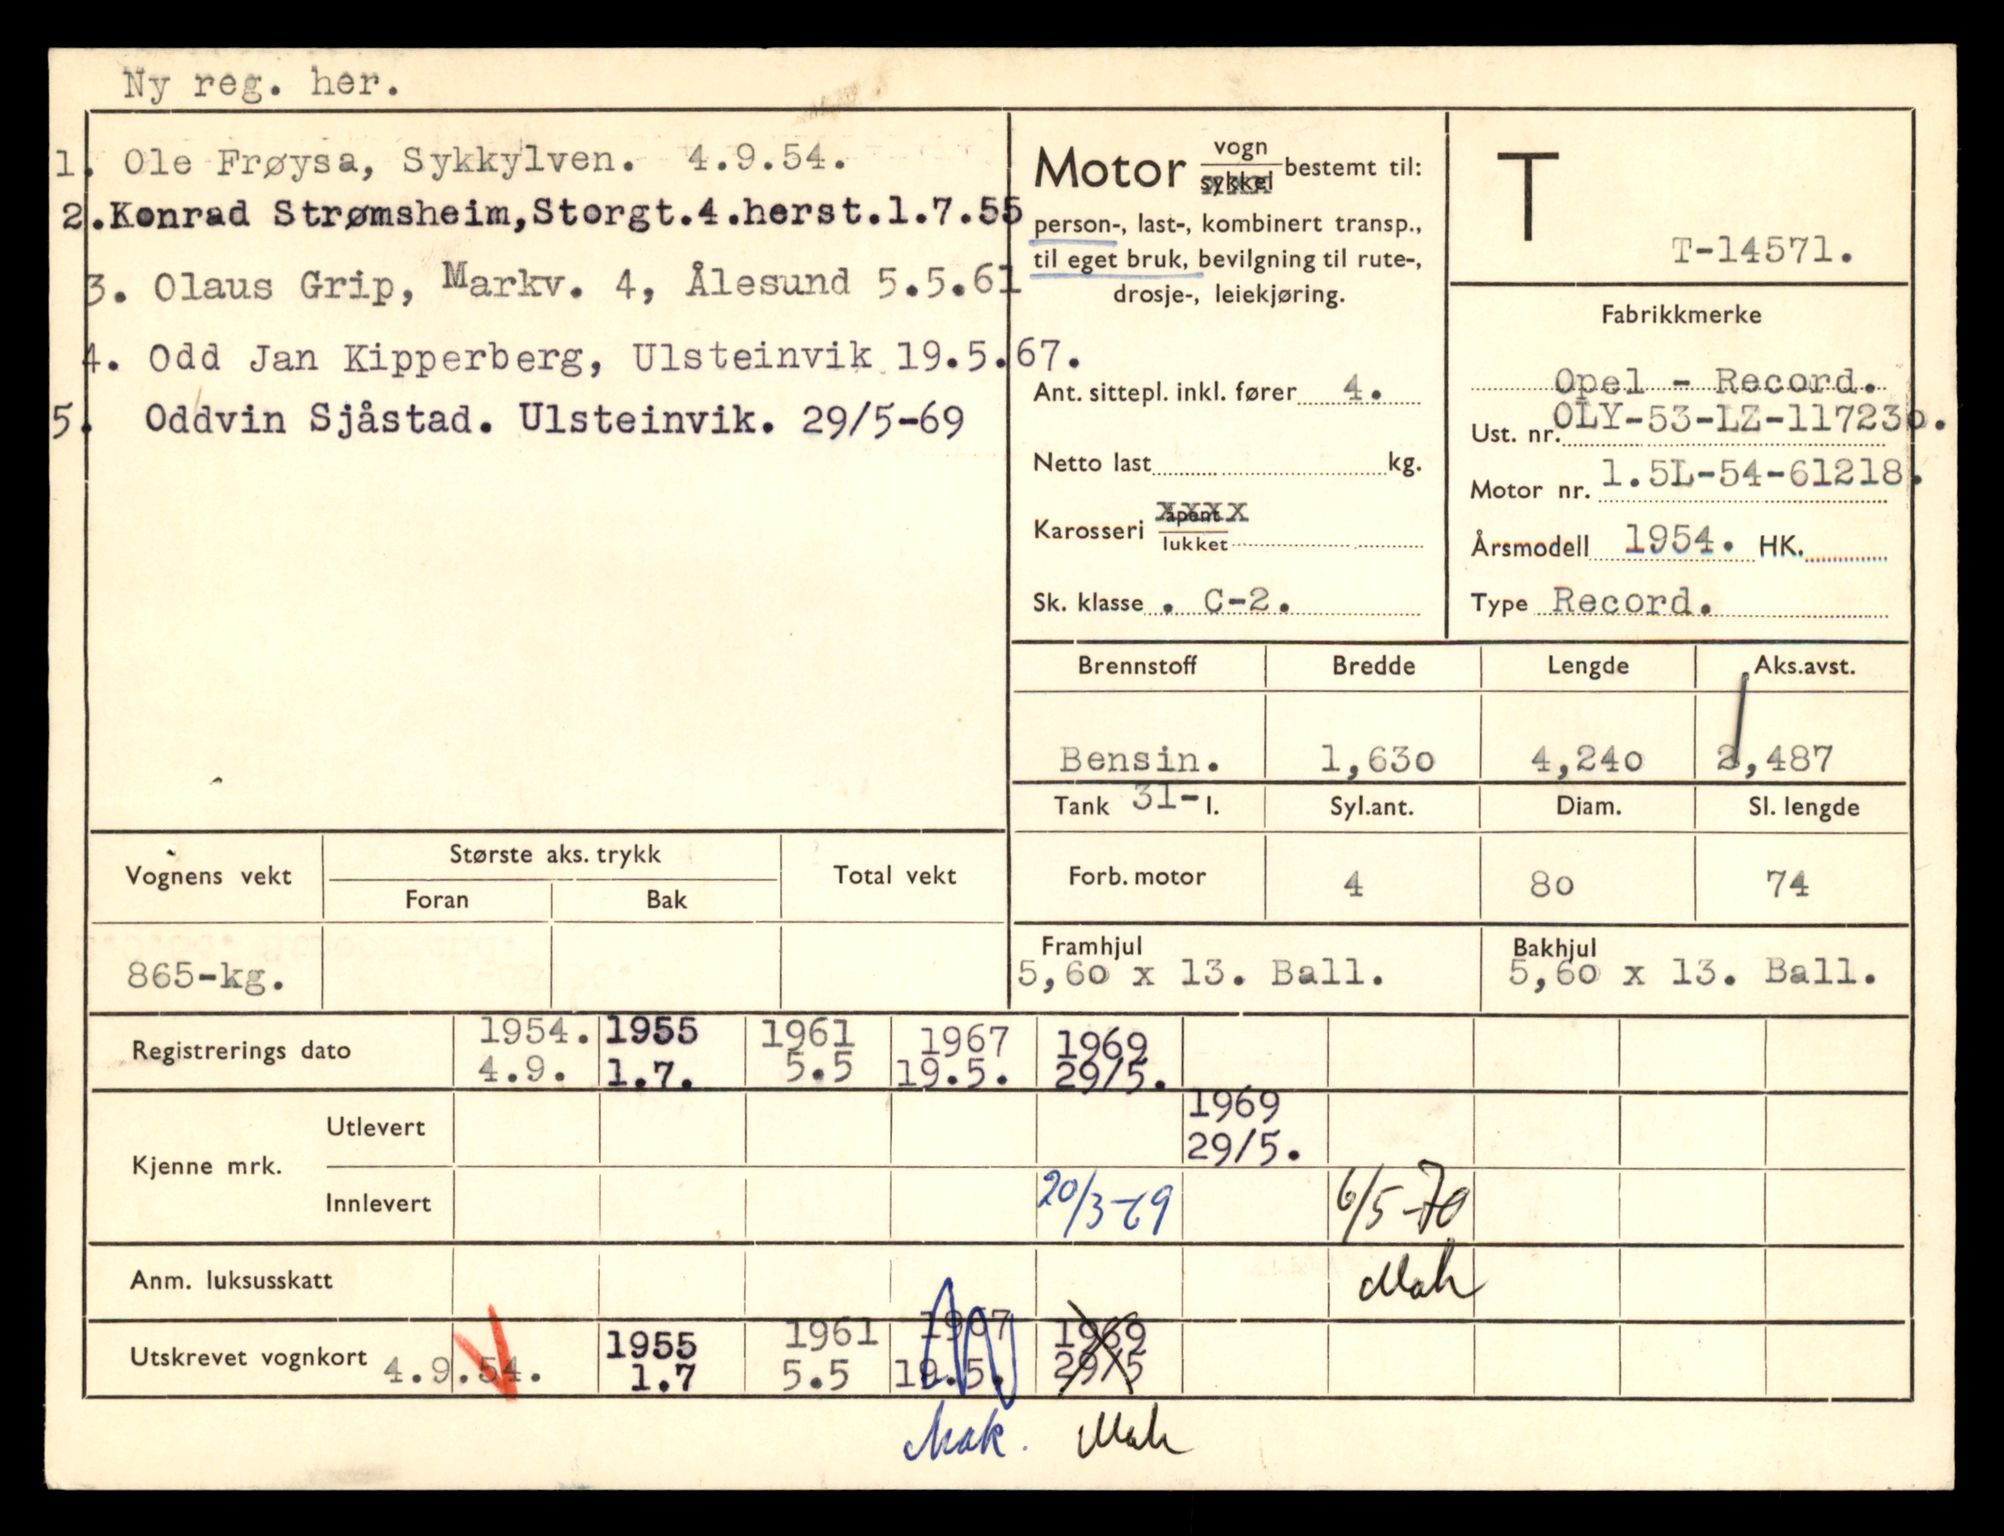 Ny reg. her.
1. Ole Frøysa, Sykkylven. 4.9.54.
2.Konrad Strømsheim,Storgt.4.herst.1.7.55
3. Olaus Grip, Markv. 4, Ålesund 5.5.61
4. Odd Jan Kipperberg, Ulsteinvik 19.5.67.
5. Oddvin Sjåstad. Ulsteinvik. 29/5-69
Motor vogn bestemt til:
sykkel
person-, last-, kombinert transp.,
til eget bruk, bevilgning til rute-,
drosje-, leiekjøring.
Ant. sittepl. inkl. fører 4.
Netto last kg.
Karosseri åpent xxxx
lukket
Sk. klasse . C-2.
T
T-14571.
Fabrikkmerke
Opel - Record.
Ust. nr. OLY-53-LZ-117230.
Motor nr. 1.5L-54-61218.
Årsmodell 1954. HK.
Type Record.
Brennstoff Bredde Lengde Aks.avst.
Bensin. 1,630 4,240 2,487
Tank 31- l. Syl.ant. Diam. Sl. lengde
Forb. motor 4 80 74
Framhjul Bakhjul
5,60 x 13. Ball. 5,60 x 13. Ball.
Vognens vekt Største aks. trykk Total vekt
Foran Bak
865-kg.
Registrerings dato 1954. 1955 1961 1967 1969
4.9. 1.7. 5.5 19.5. 29/5.
Kjenne mrk. Utlevert 1969
29/5.
Innlevert 20/3-69 6/5-70
Mak
Anm. luksusskatt
Utskrevet vognkort 4.9.54. 1955 1961 1967 1969
1.7 5.5 19.5. 29/5
Mak. Mak